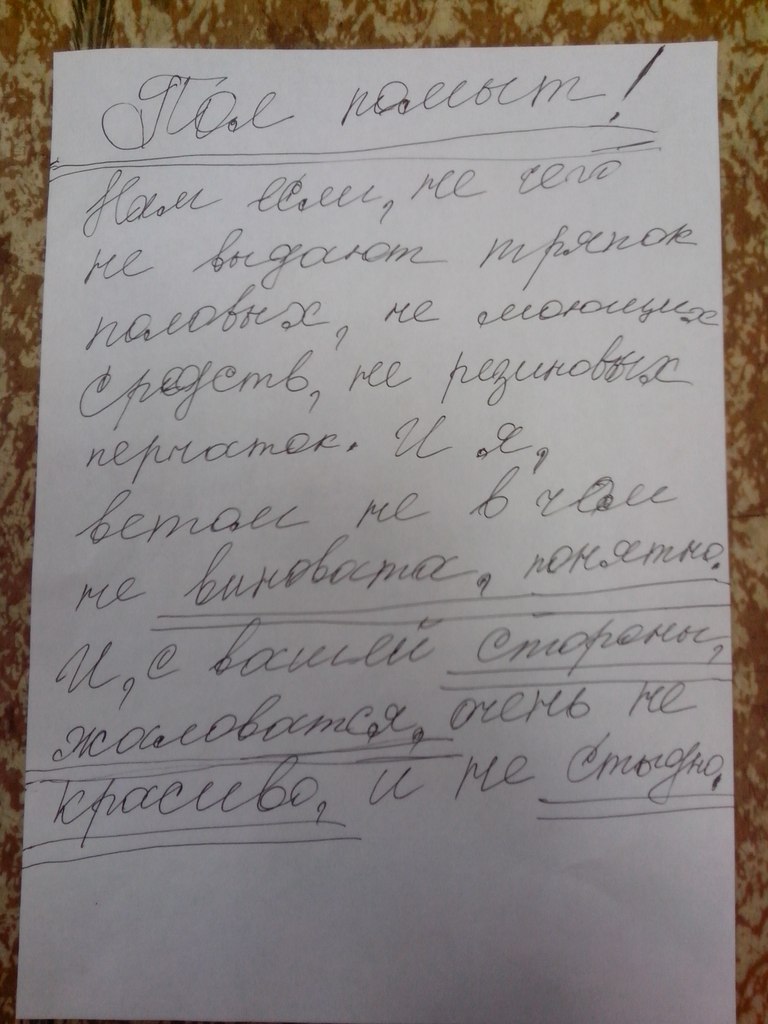 Пол помыт!
Нам если, не чего
не выдают тряпок
половых, не моющих
средств, не резиновых
перчаток. И я,
ветом не в чём
не виновата, понятно.
И, с вашей стороны,
жаловатся, очень не
красиво, и не стыдно.